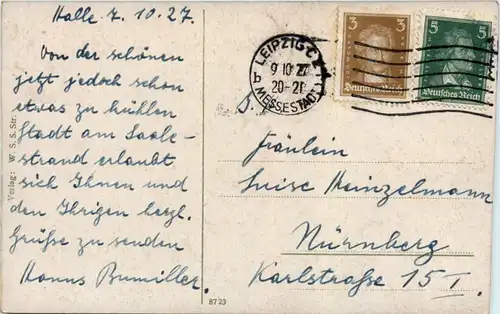 Halle 7. 10. 27.
Von der schönen
jetzt jedoch schon
etwas zu kühlen
Stadt am Saale-
strand erlaubt
sich Ihnen und
den Ihrigen bergl.
Grüße zu senden
Hanns Bumiller.
Verlag: W. S. s. Str.
LEIPZIG C 2
9 10 27
20-21
b
MESSESTADT
3
3
Deutsches Reich
5
5
Deutsches Reich
Fräulein
Luise Heinzelmann
Nürnberg
Karlstraße 15 I.
8723